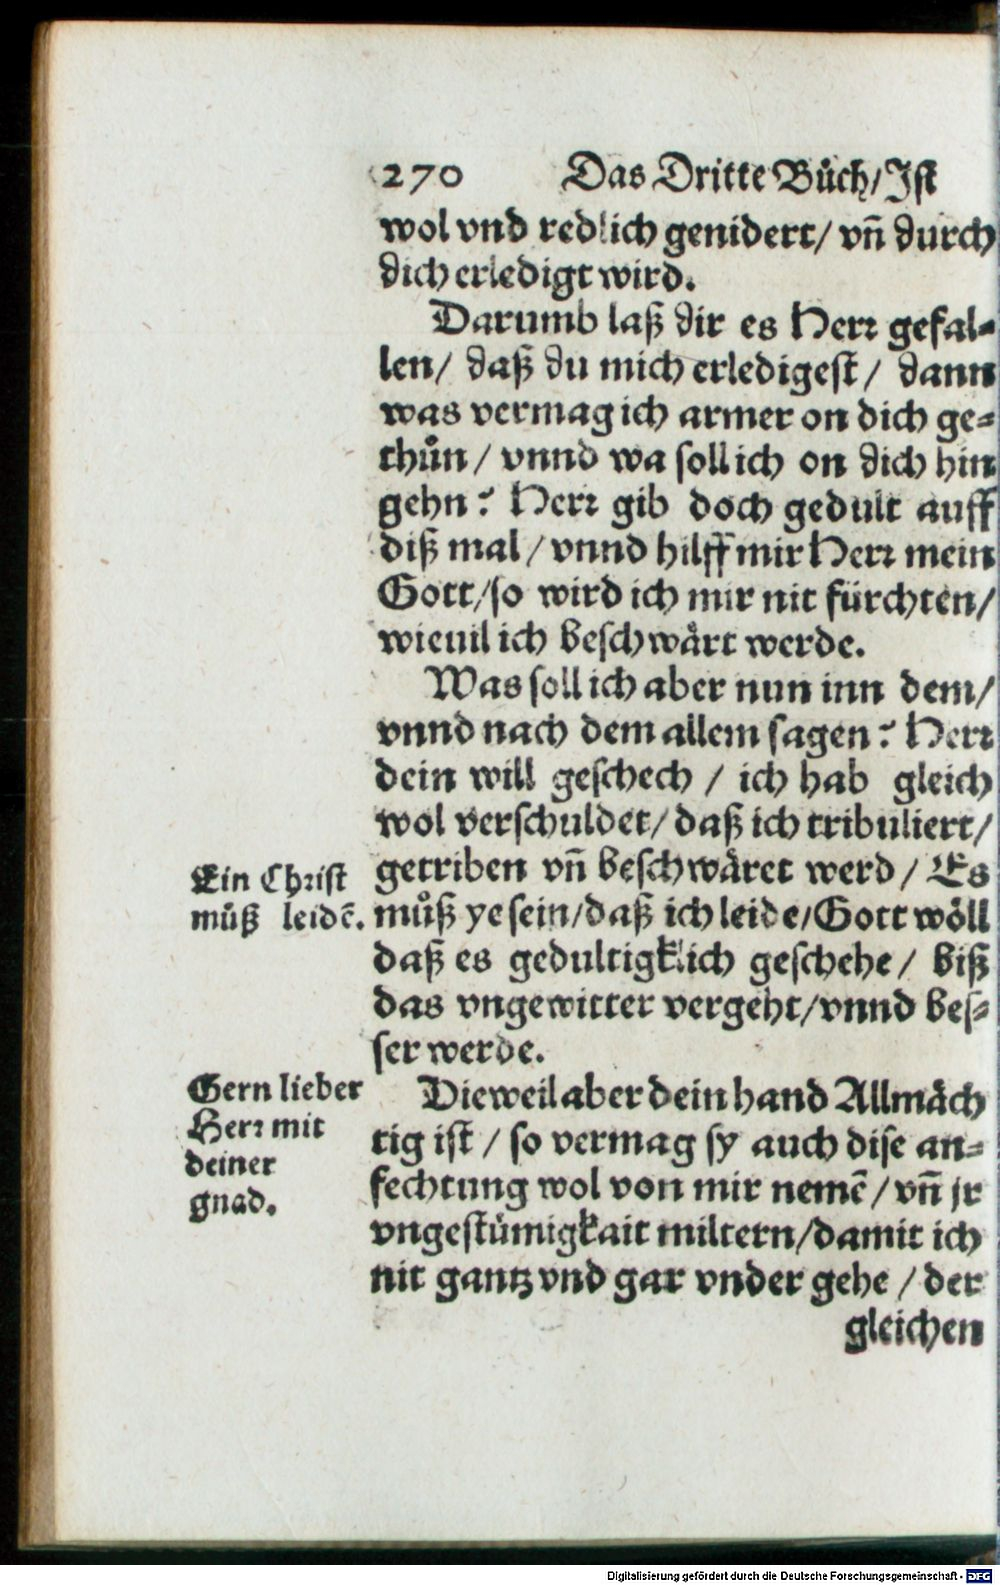 270 Das Dritte Bůch/ Ist
wol vnd redlich genidert/ vñ durch
dich erledigt wird.
Darumb laß dir es Herr gefal-
len/ daß du mich erledigest/ dann
was vermag ich armer on dich ge-
thůn/ vnnd wa soll ich on dich hin
gehn? Herr gib doch gedult auff
diß mal/ vnnd hilff mir Herr mein
Gott/ so wird ich mir nit fürchten/
wieuil ich beschwärt werde.
Was soll ich aber nun inn dem/
vnnd nach dem allem sagen? Herr
dein will geschech/ ich hab gleich
wol verschuldet/ daß ich tribuliert/
getriben vñ beschwäret werd/ Es
můß ye sein/ daß ich leide/ Gott wöll
daß es gedultigklich geschehe/ biß
das vngewitter vergeht/ vnnd bes-
ser werde.
Ein Christ
můß leidẽ.
Dieweil aber dein hand Allmäch
tig ist/ so vermag sy auch dise an-
fechtung wol von mir nemẽ/ vñ jr
vngestümigkait miltern/ damit ich
nit gantz vnd gar vnder gehe/ der
gleichen
Gern lieber
Herr mit
deiner
gnad.
Digitalisierung gefördert durch die Deutsche Forschungsgemeinschaft - DFG